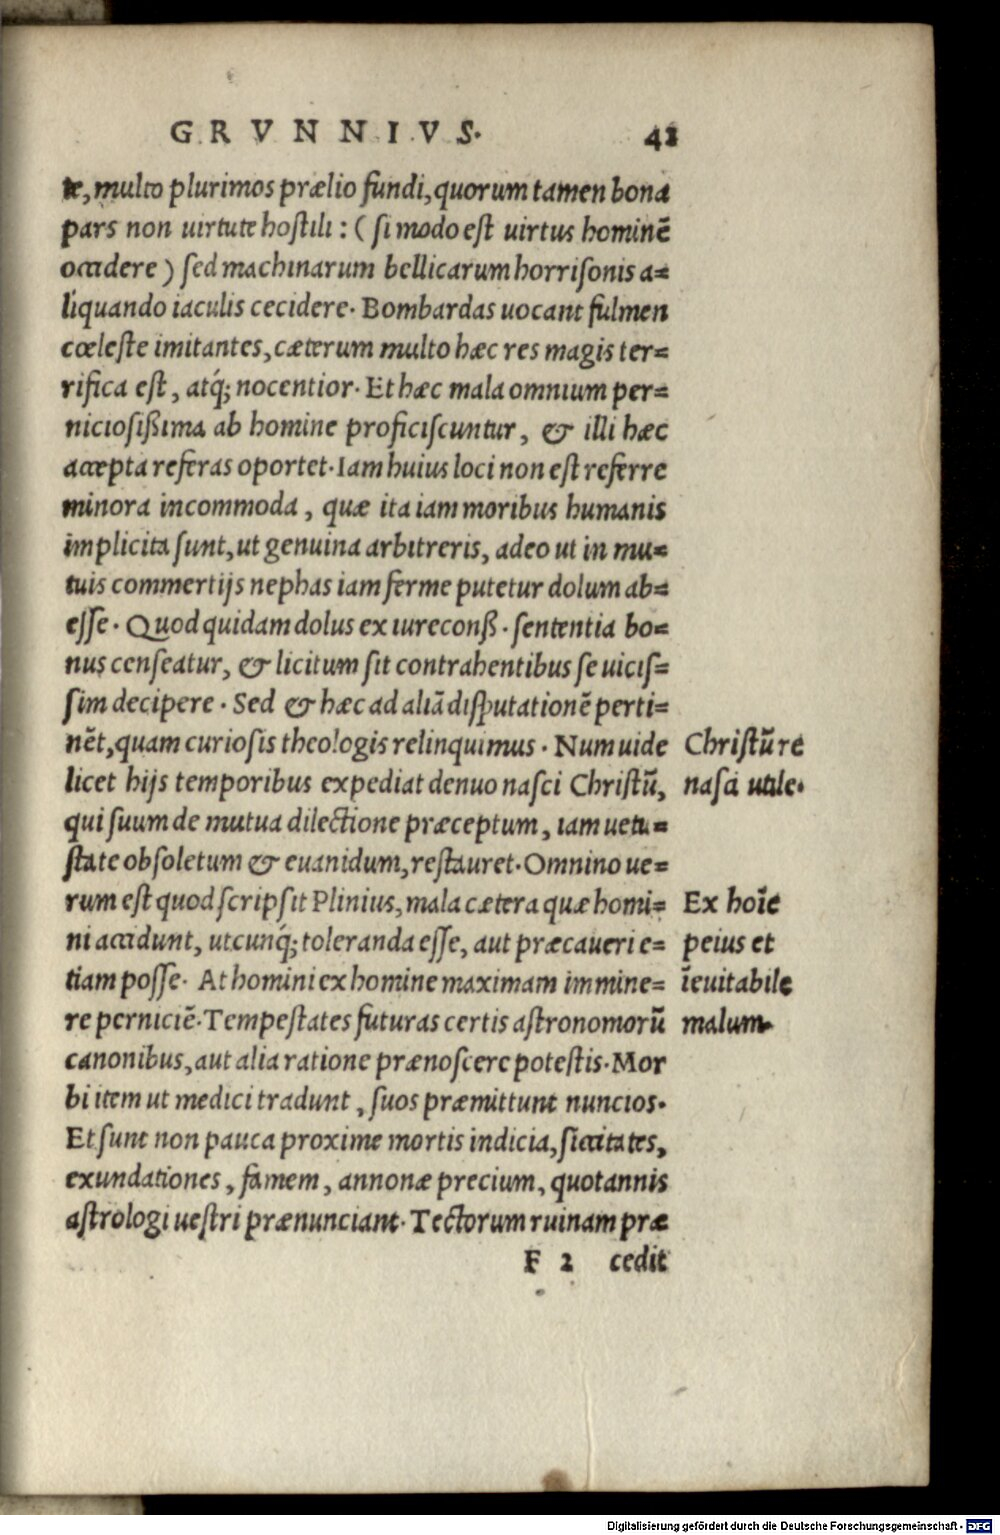 GRVNNIVS. 42
te, multo plurimos prælio fundi, quorum tamen bona
pars non uirtute hostili : ( si modo est uirtus hominē
occidere ) sed machinarum bellicarum horrisonis a=
liquando iaculis cecidere. Bombardas uocant fulmen
cœleste imitantes, cæterum multo hæc res magis ter=
rifica est, atq́; nocentior. Et hæc mala omnium per=
niciosißima ab homine proficiscuntur, & illi hæc
accepta referas oportet. Iam huius loci non est referre
minora incommoda, quæ ita iam moribus humanis
implicita sunt, ut genuina arbitreris, adeo ut in mu=
tuis commertijs nephas iam ferme putetur dolum ab=
esse. Quod quidam dolus ex iureconß. sententia bo=
nus censeatur, & licitum sit contrahentibus se uicis=
sim decipere. Sed & hæc ad aliā disputationē perti=
nēt, quam curiosis theologis relinquimus. Num uide
licet hijs temporibus expediat denuo nasci Christū,
qui suum de mutua dilectione præceptum, iam uetu=
state obsoletum & euanidum, restauret. Omnino ue=
rum est quod scripsit Plinius, mala cætera quæ homi=
ni accidunt, utcunq́; toleranda esse, aut præcaueri e=
tiam posse. At homini ex homine maximam immine=
re perniciē. Tempestates futuras certis astronomorū
canonibus, aut alia ratione prænoscere potestis. Mor
bi item ut medici tradunt, suos præmittunt nuncios.
Et sunt non pauca proxime mortis indicia, siccitates,
exundationes, famem, annonæ precium, quotannis
astrologi uestri prænunciant. Tectorum ruinam præ
F 2 cedit
Christū re
nasci utile.
Ex hoīe
peius et
īeuitabile
malum.
Digitalisierung gefördert durch die Deutsche Forschungsgemeinschaft - DFG